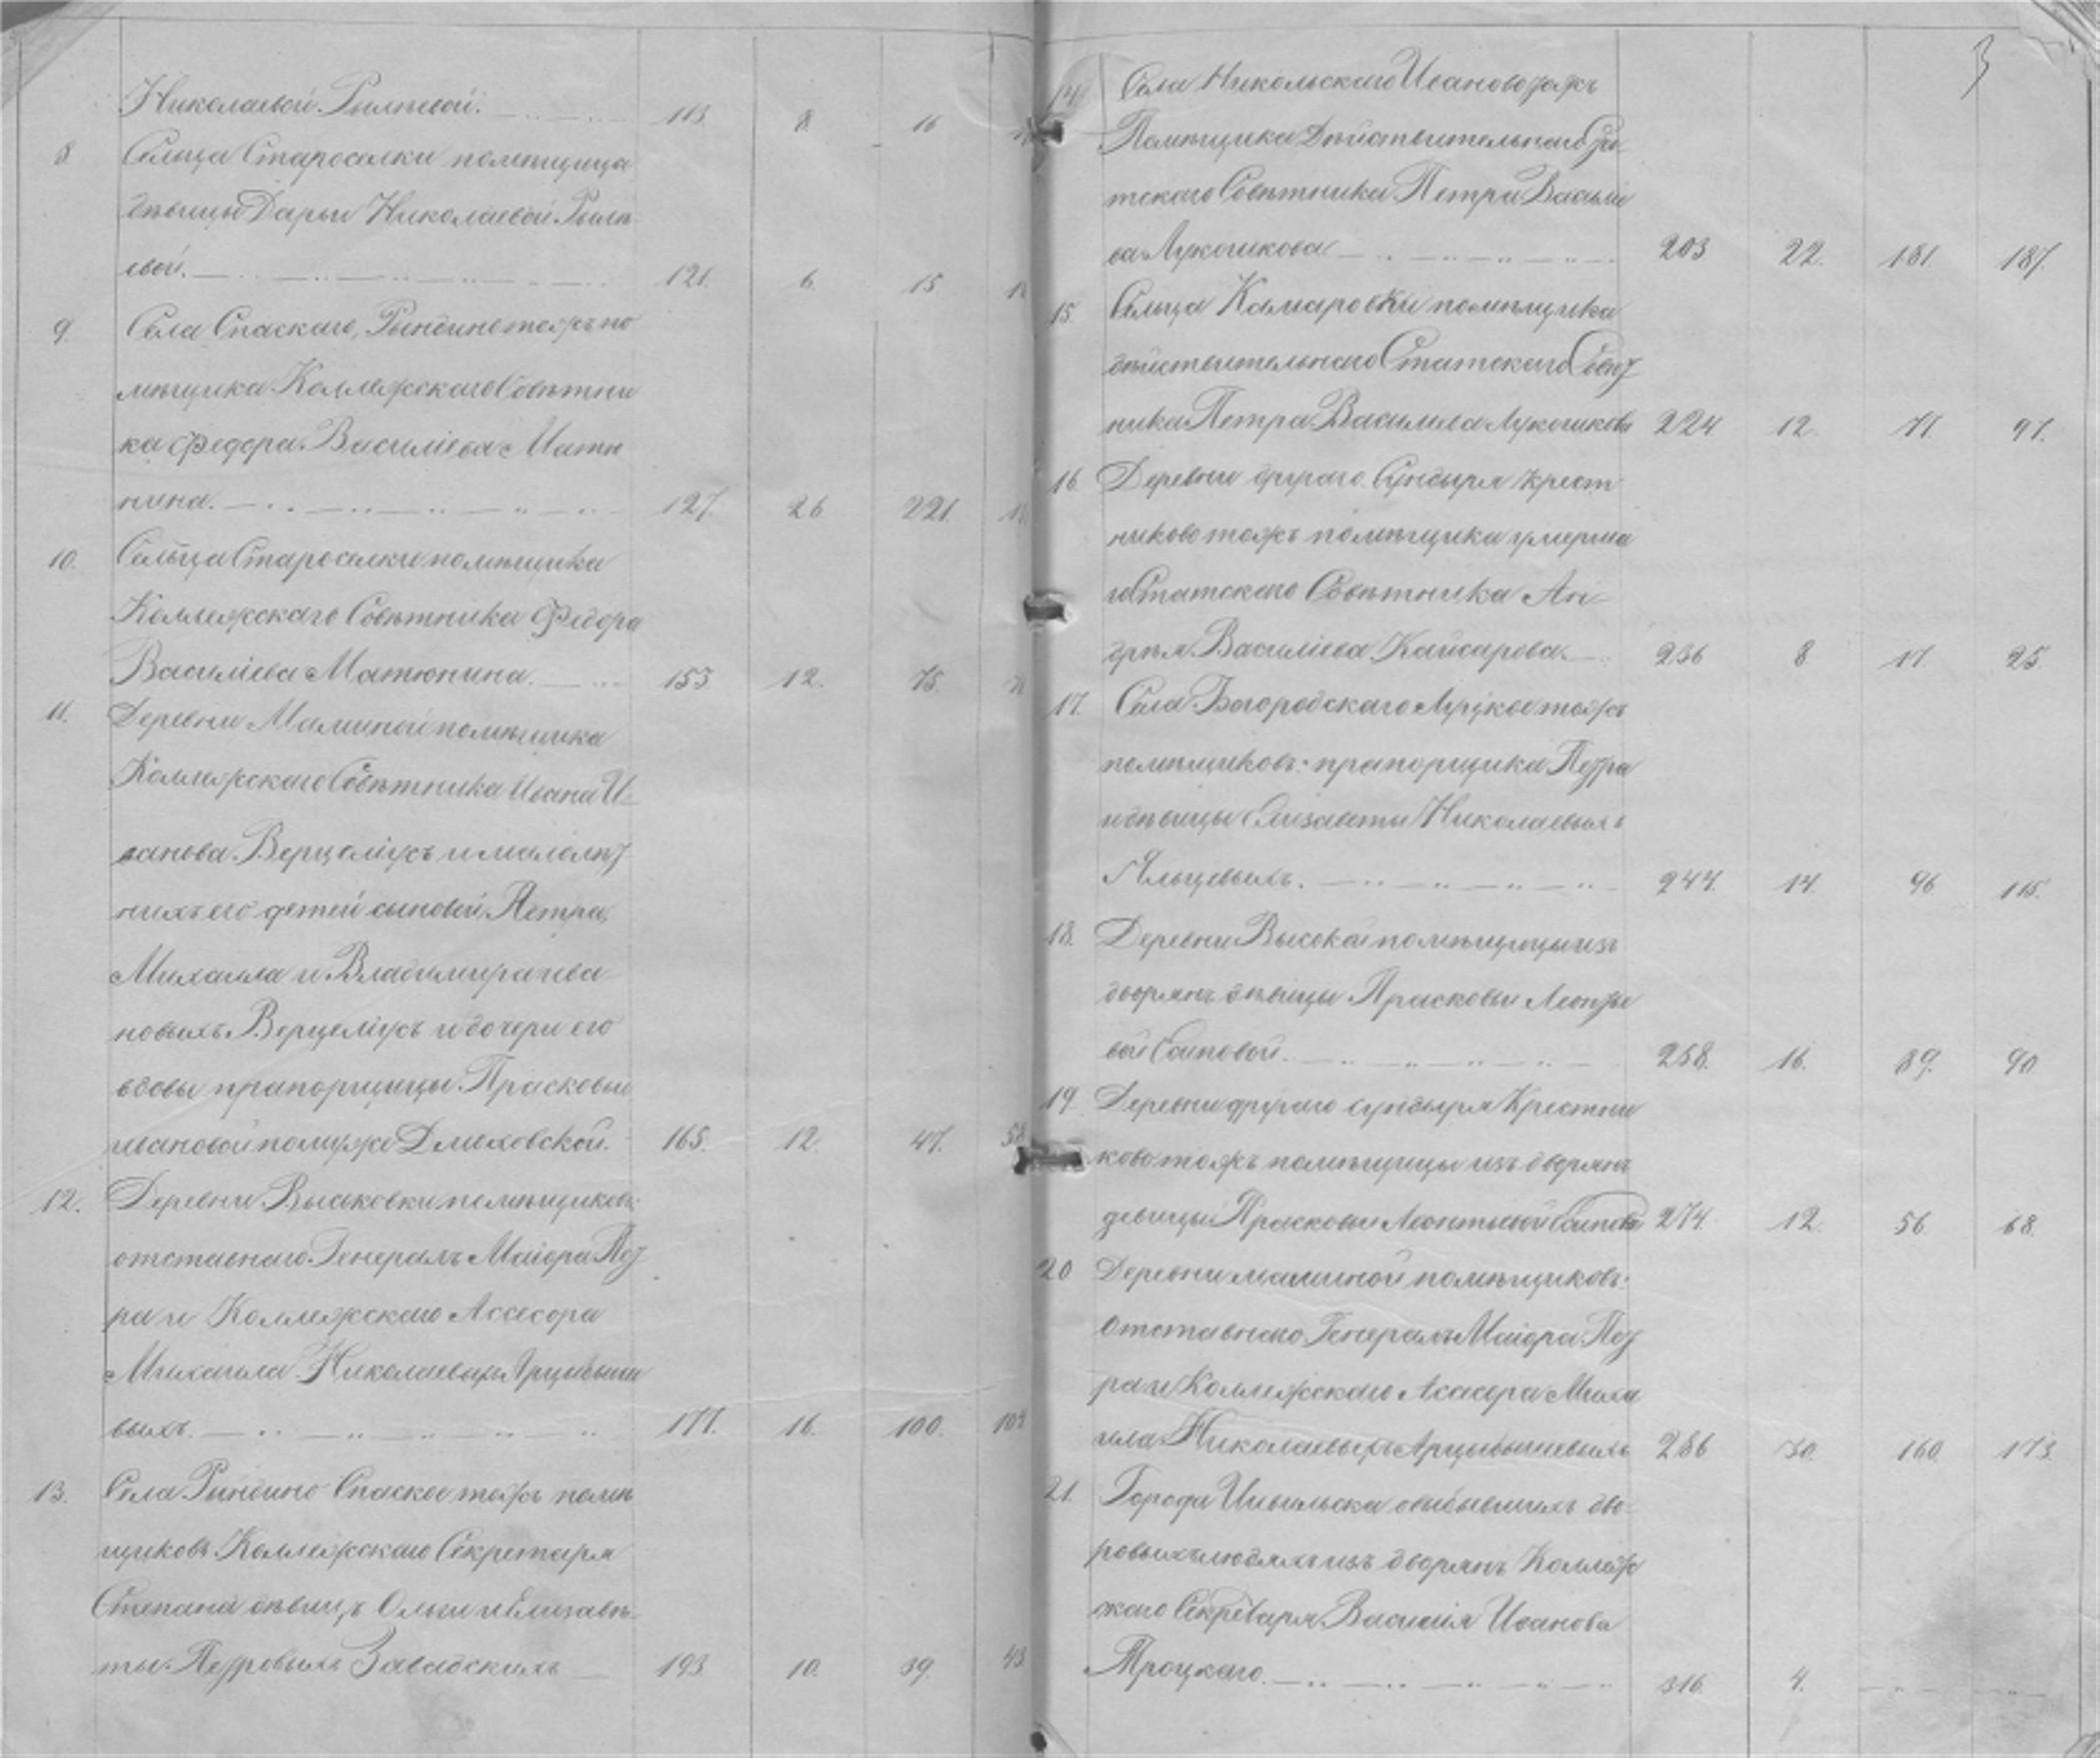 Николаевой Рылѣевой. 113. 8. 16
8 Сельца Староселки помѣщица
дѣвицы Дарьи Николаевой Рылѣ
евой. 121. 6. 15
9. Села Спаскаго, Рындино тожъ по
мѣщика Коллежскаго Совѣтни
ка Федора Василіева Матю
нина. 127. 26 221.
10. Сельца Староселки помѣщика
Коллежскаго Совѣтника Федора
Василіева Матюнина. 153 12. 75.
11. Деревни Малиной помѣщика
Коллежскаго Совѣтника Ивана И-
ванова Верцеліусъ и малолѣт
нихъ его детей сыновей, Петра,
Михаила и Владимира Ива
новыхъ Верцеліусъ и дочери его
вдовы прапорщицы Прасковьи
Ивановой помужѣ Дмоховской. 165. 12. 47. 58
12. Деревни Высаковки помѣщиковъ:
отставнаго Генералъ Маіора Пет
ра и Коллежскаго Ассесора
Михаила Николаевыхъ Арцыбыше
выхъ. 177. 16. 100. 104
13. Села Рындино Спаское тожъ помѣ
щиковъ Коллежскаго Секретаря
Степана дѣвицъ Ольги и Елизавѣ-
ты Петровыхъ Завадскихъ 193. 10. 39. 43
3
14 Села Никольскаго Иваново тожъ
Помѣщика Дѣйствительнаго Ста
тскаго Совѣтника Петра Василіе
ва Лукошкова 203 22. 181. 187.
15. Сельца Камаровки помѣщика
дѣйствительнаго Статскаго Совѣт
ника Петра Василіева Лукошкова 224 12. 71. 91.
16. Деревни другаго Сундыря Крест
никово тожъ помѣщика умерша
го Статскаго Совѣтника Ан-
дрѣя Василіева Кайсарова. 236 8 17. 25.
17. Села Богородскаго тожъ
помѣщиковъ: прапорщика Петра
и дѣвицы Елизаветы Николаевыхъ
Яльцевыхъ. 244. 14. 96 115.
18. Деревни Высокой помѣщицы изъ
дворянъ дѣвицы Прасковьи Леонтье
вой Саиповой. 258. 16. 89. 90
19. Деревни другаго сундыря Крестни
ково тожъ помѣщицы изъ дворянъ
девицы Прасковьи Леонтьевой Саиповой 274. 12. 56. 68.
20 Деревни малиной помѣщиковъ:
отставнаго Генералъ Маіора Пет
ра и Коллежскаго Ассесора Миха
ила Николаевыхъ Арцыбышевыхъ 286 30. 160 173
21. Города Цивильска обывшихъ дво-
ровыхъ людяхъ изъ дворянъ Коллеж
скаго Секретаря Василія Иванова
Троцкаго. 316. 4.